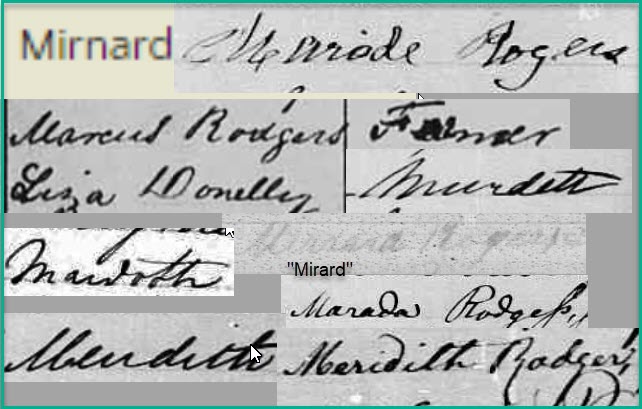 Mirnard
Mariode Rogers
Marcus Rodgers Farmer
Liza Donelly
Murdett
"Mirard"
Mardoth
Marada Rodgers
Meridith
Meridith Rodgers